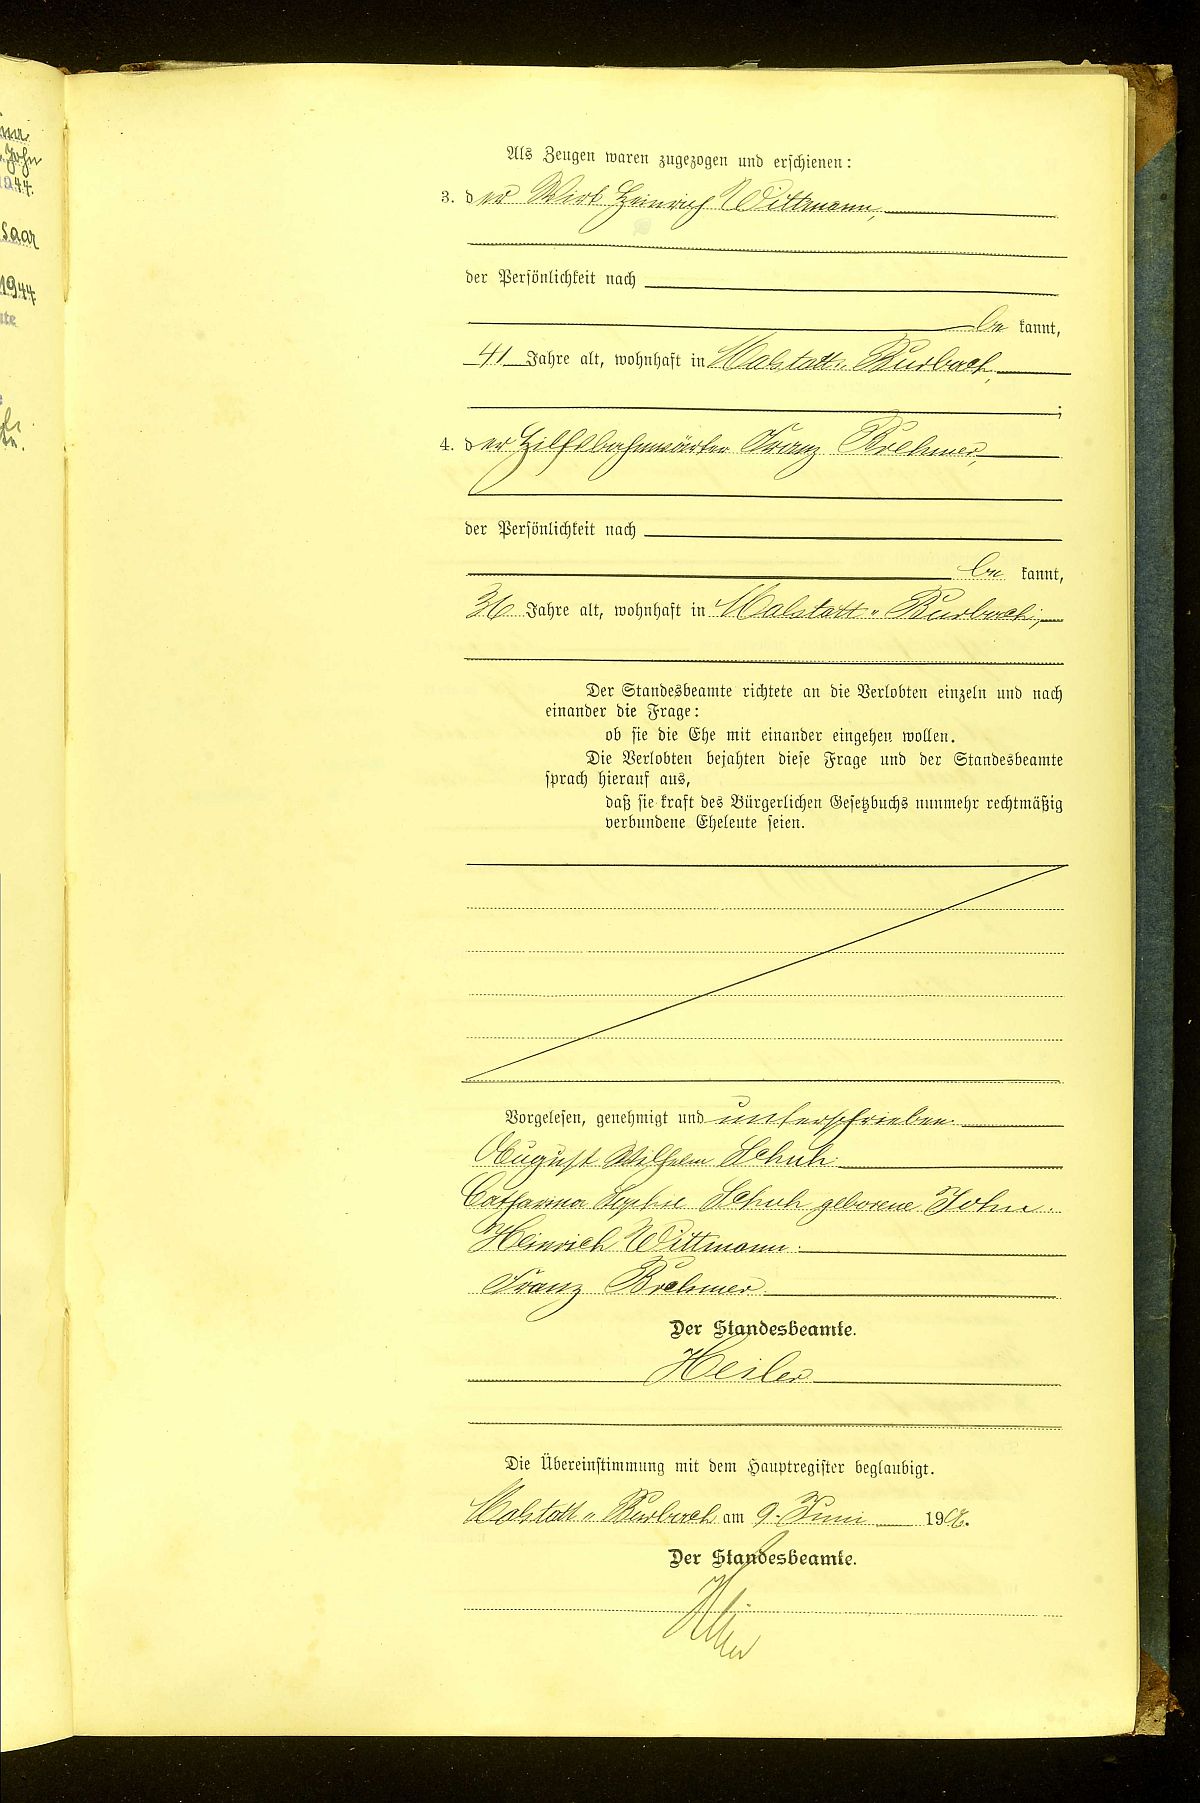 John
1944.
Saar
1944
Als Zeugen waren zugezogen und erschienen:
3. der Wirt Heinrich Wittmann,
der Persönlichkeit nach
be kannt,
41 Jahre alt, wohnhaft in Malstatt-Burbach,
;
4. der Hilfsbahnwärter Franz Brehmer,
der Persönlichkeit nach
be kannt,
36 Jahre alt, wohnhaft in Malstatt-Burbach,
Der Standesbeamte richtete an die Verlobten einzeln und nach
einander die Frage:
ob sie die Ehe mit einander eingehen wollen.
Die Verlobten bejahten diese Frage und der Standesbeamte
sprach hierauf aus,
daß sie kraft des Bürgerlichen Gesetzbuchs nunmehr rechtmäßig
verbundene Eheleute seien.
Vorgelesen, genehmigt und unterschrieben.
August Wilhelm Schuh.
Catharina Sophie Schuh geborene John.
Heinrich Wittmann.
Franz Brehmer.
Der Standesbeamte.
Heiler
Die Übereinstimmung mit dem Hauptregister beglaubigt.
Malstatt-Burbach am 9. Juni 19
Der Standesbeamte.